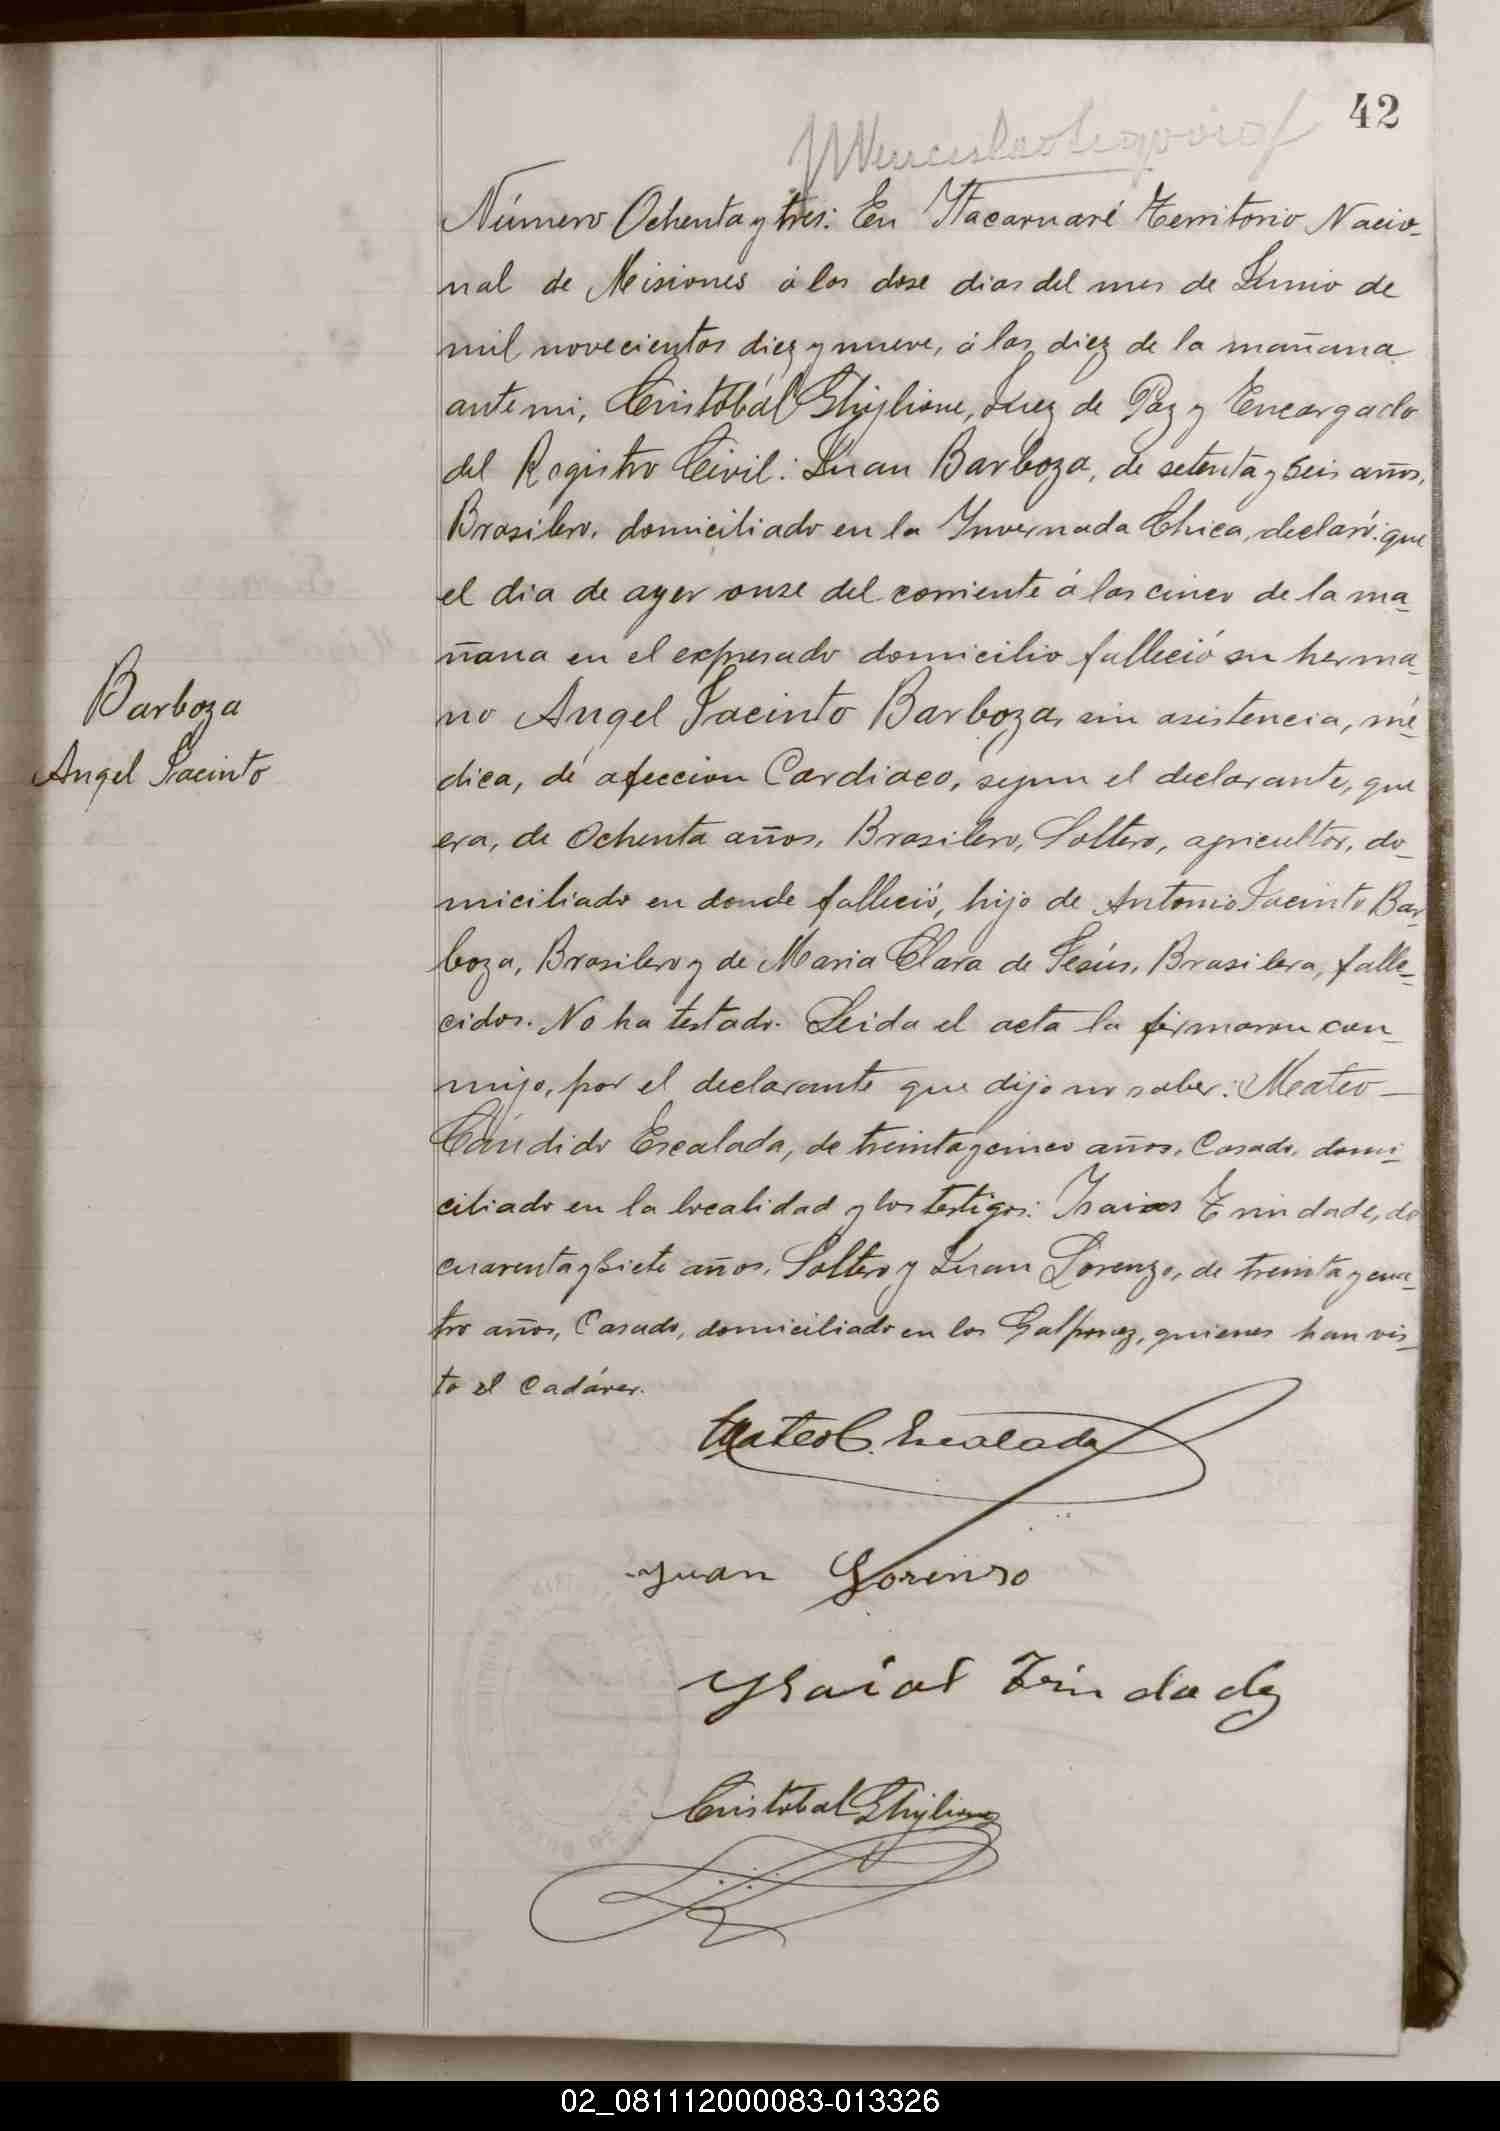 42
Número Ochenta y tres: En Ytacaruaré Territorio Nacio-
nal de Misiones á los dose dias del mes de Junio de
mil novecientos diez y nueve, á las diez de la mañana
ante mi, Cristobál Ghiglione, Juez de Paz y Encargado
del Registro Civil: Juan Barboza, de setenta y seis años,
Brasilero, domiciliado en la Ynvernada Chica, declaró: que
el dia de ayer onse del corriente á las cinco de la ma-
ñana en el expresado domicilio falleció su herma-
no Angel Jacinto Barboza, sin asistencia, mé-
Barboza
Angel Jacinto
dica, de afeccion Cardiaca, segun el declarante, que
era, de Ochenta años, Brasilero, Soltero, agricultor, do-
miciliado en donde falleció, hijo de Antonio Jacinto Bar-
boza, Brasilero y de Maria Clara de Jesús, Brasilera, falle-
cidos. No ha testado. Leida el acta la firmaron con-
migo, por el declarante que dijo no saber: Mateo
Cándido Escalada, de treinta y cinco años, Casado, domi-
ciliado en la localidad y los testigos: Isaias Trindade, de
cuarenta y siete años, Soltero y Juan Lorenzo, de treinta y cua-
tro años, Casado, domiciliado en los Galponez, quienes han vis-
to el Cadáver.
Mateo C. Escalada
Juan Lorenzo
Ysaias Trindade
Cristobal Ghiglione
02_081112000083-013326